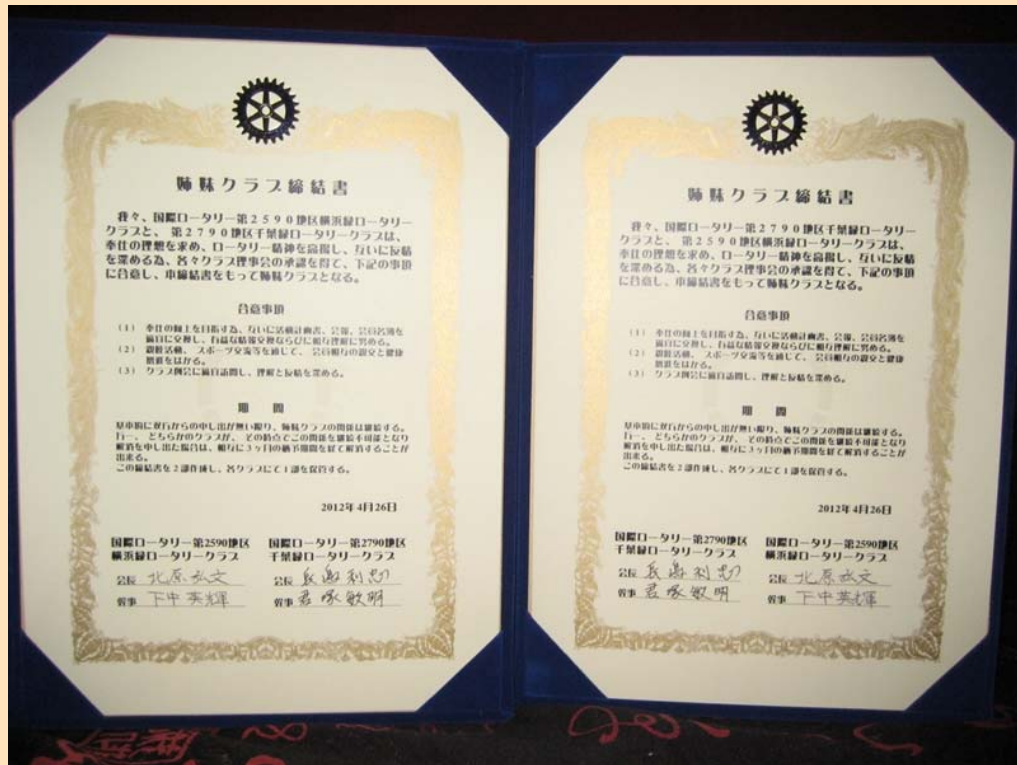 姉妹クラブ締結書
我々、国際ロータリー第2590地区横浜緑ロータリー
クラブと、第2790地区千葉緑ロータリークラブは、
奉仕の理想を求め、ロータリー精神を高揚し、互いに友情
を深める為、各々クラブ理事会の承認を得て、下記の事項
に合意し、本締結書をもって姉妹クラブとなる。
合意事項
(1) 奉仕の向上を目指す為、互いに活動計画書、会報、会員名簿を
適宜に交換し、有益な情報交換ならびに相互理解に努める。
(2) 親睦活動、スポーツ交流等を通じて、会員相互の親交と健康
増進をはかる。
(3) クラブ例会に適宜訪問し、理解と友情を深める。
期 間
基本的に双方からの申し出が無い限り、姉妹クラブの関係は継続する。
万一、どちらかのクラブが、その時点でこの関係を継続不可能となり
解消を申し出た場合は、相互に3ヶ月の猶予期間を経て解消することが
出来る。
この締結書を2部作成し、各クラブにて1部を保管する。
2012年4月26日
国際ロータリー第2590地区 国際ロータリー第2790地区
横浜緑ロータリークラブ 千葉緑ロータリークラブ
会長 北原 文 会長 利忠
幹事 下中英輝 幹事 君塚敏明
姉妹クラブ締結書
我々、国際ロータリー第2790地区千葉緑ロータリー
クラブと、第2590地区横浜緑ロータリークラブは、
奉仕の理想を求め、ロータリー精神を高揚し、互いに友情
を深める為、各々クラブ理事会の承認を得て、下記の事項
に合意し、本締結書をもって姉妹クラブとなる。
合意事項
(1) 奉仕の向上を目指す為、互いに活動計画書、会報、会員名簿を
適宜に交換し、有益な情報交換ならびに相互理解に努める。
(2) 親睦活動、スポーツ交流等を通じて、会員相互の親交と健康
増進をはかる。
(3) クラブ例会に適宜訪問し、理解と友情を深める。
期 間
基本的に双方からの申し出が無い限り、姉妹クラブの関係は継続する。
万一、どちらかのクラブが、その時点でこの関係を継続不可能となり
解消を申し出た場合は、相互に3ヶ月の猶予期間を経て解消することが
出来る。
この締結書を2部作成し、各クラブにて1部を保管する。
2012年4月26日
国際ロータリー第2790地区 国際ロータリー第2590地区
千葉緑ロータリークラブ 横浜緑ロータリークラブ
会長 利忠 会長 北原 文
幹事 君塚敏明 幹事 下中英輝